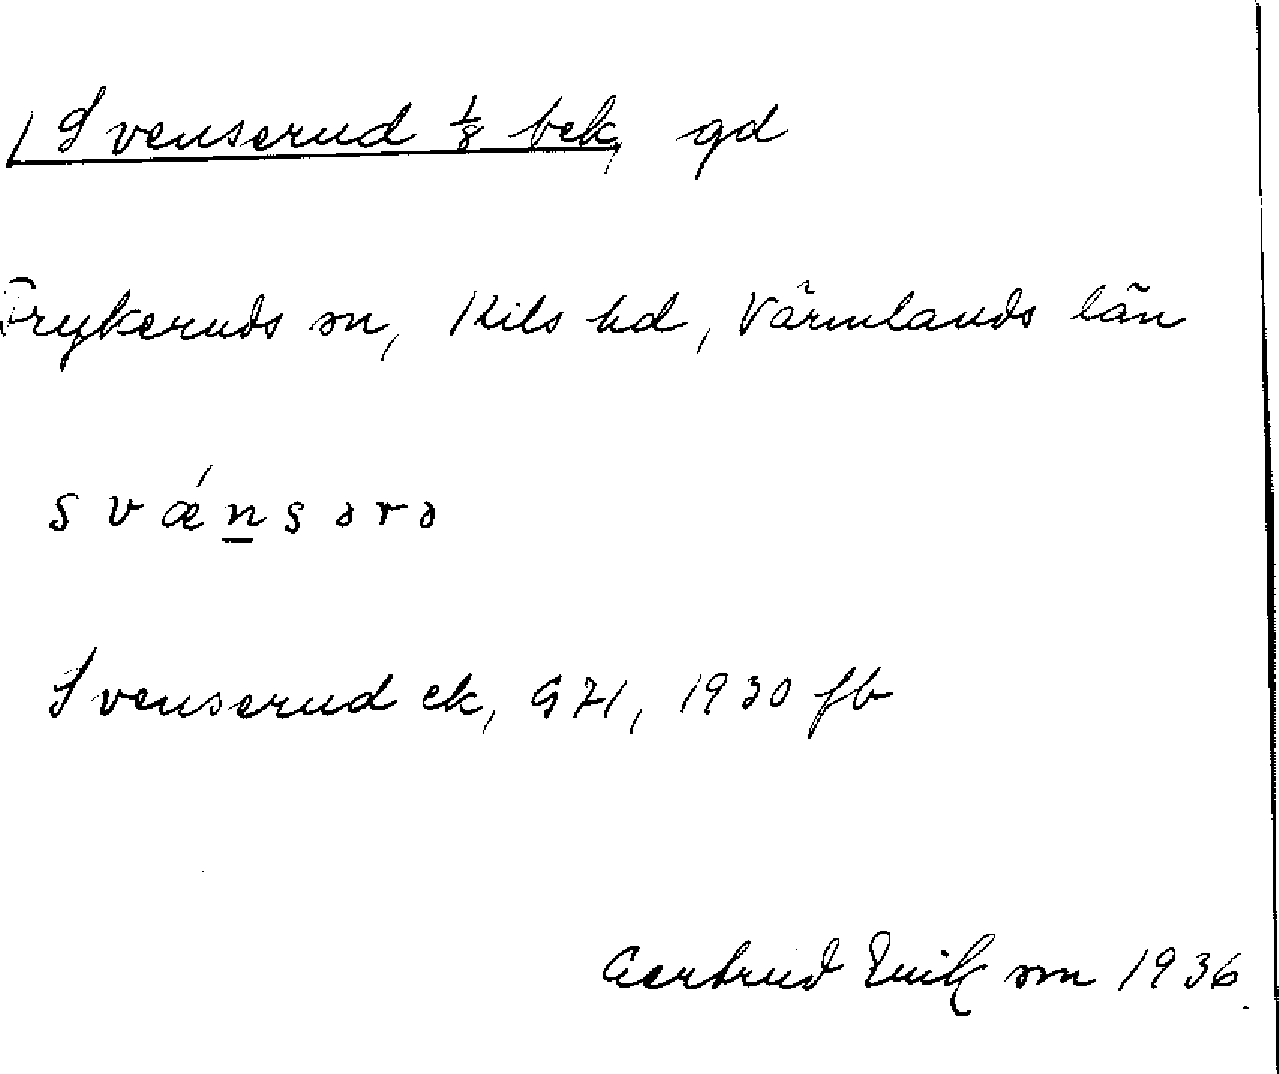 Svenserud ⅛ bek, gd
Frykeruds sn, Kils hd, Värmlands län
s v ǽ n s ə r ə
Svenserud ek, GEK, 1930 fb
Gertrud Erikson 1936